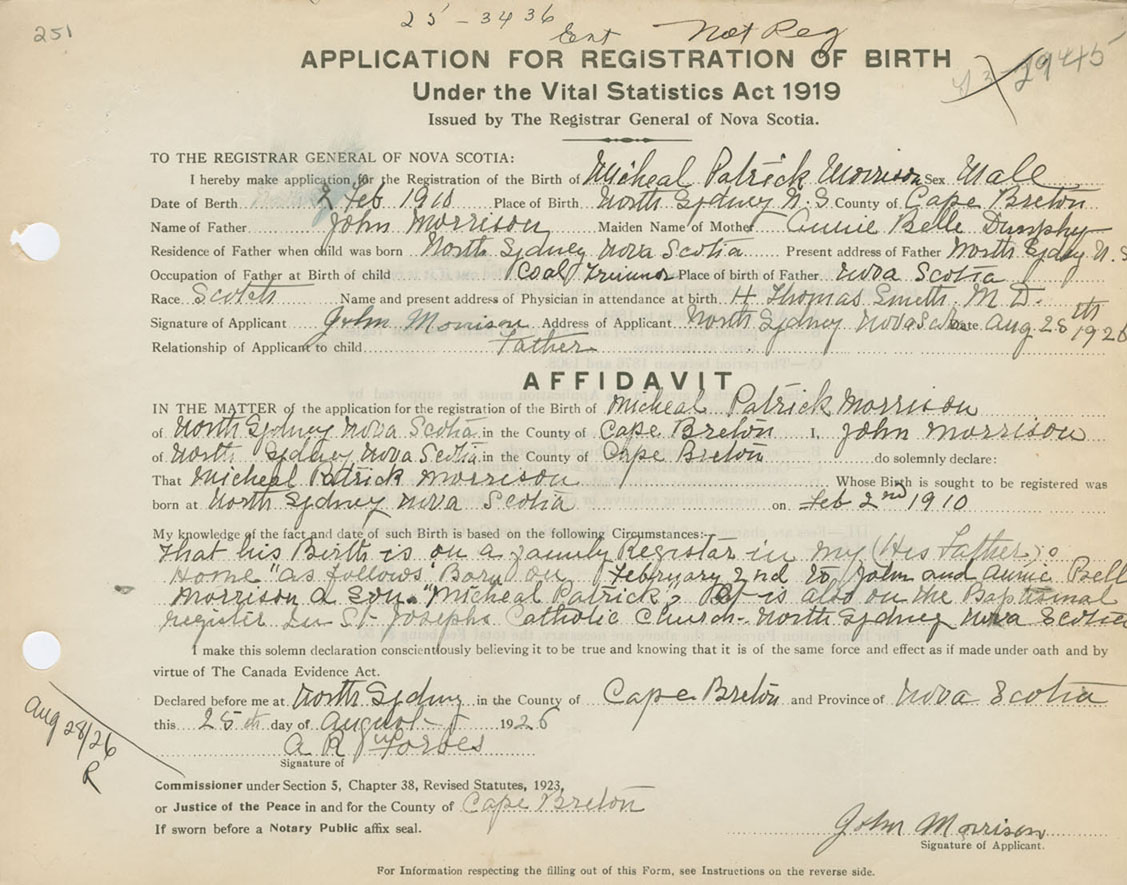 251
25-3436
Ent Not Reg
APPLICATION FOR REGISTRATION OF BIRTH
1945
Under the Vital Statistics Act 1919
Issued by The Registrar General of Nova Scotia.
TO THE REGISTRAR GENERAL OF NOVA SCOTIA:
I hereby make application for the Registration of the Birth of Micheal Patrick Morrison Sex Male
Date of Berth 2 Feb 1910 Place of Birth North Sydney N.S. County of Cape Breton
Name of Father John Morrison Maiden Name of Mother Annie Belle Dunphy
Residence of Father when child was born North Sydney Nova Scotia Present address of Father North Sydney N.S
Occupation of Father at Birth of child Coal Trimmer Place of birth of Father Nova Scotia
Race Scotch Name and present address of Physician in attendance at birth H Thomas Smith M.D.
Signature of Applicant John Morrison Address of Applicant North Sydney Nova Scotia Date Aug 28th 1926
Relationship of Applicant to child Father
AFFIDAVIT
IN THE MATTER of the application for the registration of the Birth of Micheal Patrick Morrison
of North Sydney Nova Scotia in the County of Cape Breton I, John Morrison
of North Sydney Nova Scotia in the County of Cape Breton do solemnly declare:
That Micheal Patrick Morrison Whose Birth is sought to be registered was
born at North Sydney Nova Scotia on Feb 2nd 1910
My knowledge of the fact and date of such Birth is based on the following Circumstances:
That his Birth is on a family Register in my (His Father's)
Home "as follows" Born on February 2nd to John and Annie Bell
Morrison a Son. "Micheal Patrick" It is also on the Baptismal
register in St. Josephs Catholic Church - North Sydney Nova Scotia
I make this solemn declaration conscientiously believing it to be true and knowing that it is of the same force and effect as if made under oath and by
virtue of The Canada Evidence Act.
Declared before me at North Sydney in the County of Cape Breton and Province of Nova Scotia
this 25th day of August 1926
A R Forbes
Signature of
Aug 28/26
R
Commissioner under Section 5, Chapter 38, Revised Statutes, 1923,
or Justice of the Peace in and for the County of Cape Breton
If sworn before a Notary Public affix seal.
John Morrison
Signature of Applicant.
For Information respecting the filling out of this Form, see Instructions on the reverse side.